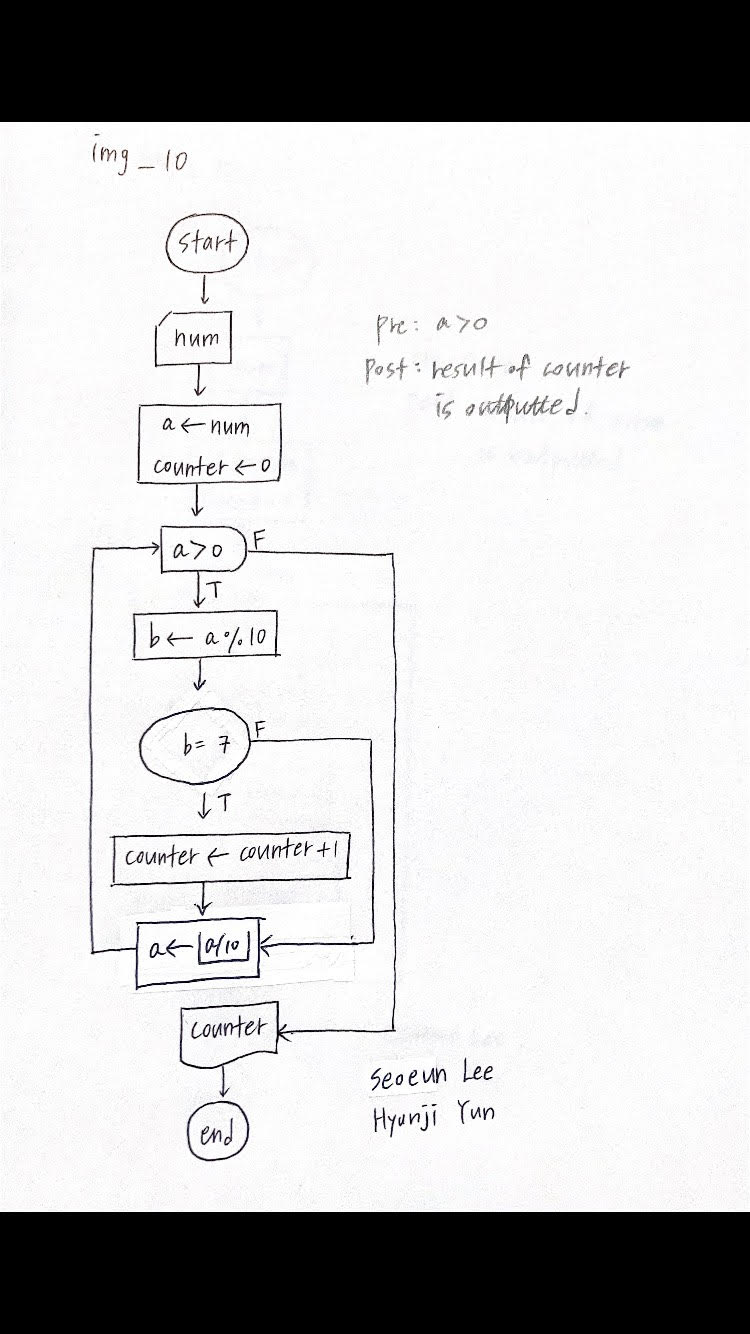 img_10
start
num
Pre: a>0
Post: result of counter
is outputted.
a←num
counter←0
a>0
F
T
b← a%10
b= 7
F
T
counter ← counter+1
a←⌊a/10⌋
counter
end
Seoeun Lee
Hyunji Yun